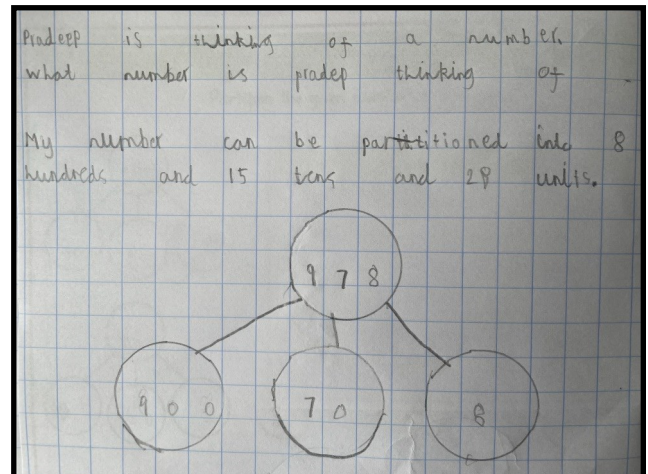 Pradeep is thinking of a number.
what number is pradep thinking of -
My number can be partitioned into 8
hundreds and 15 tens and 28 units.
9 7 8
9 0 0 7 0 8